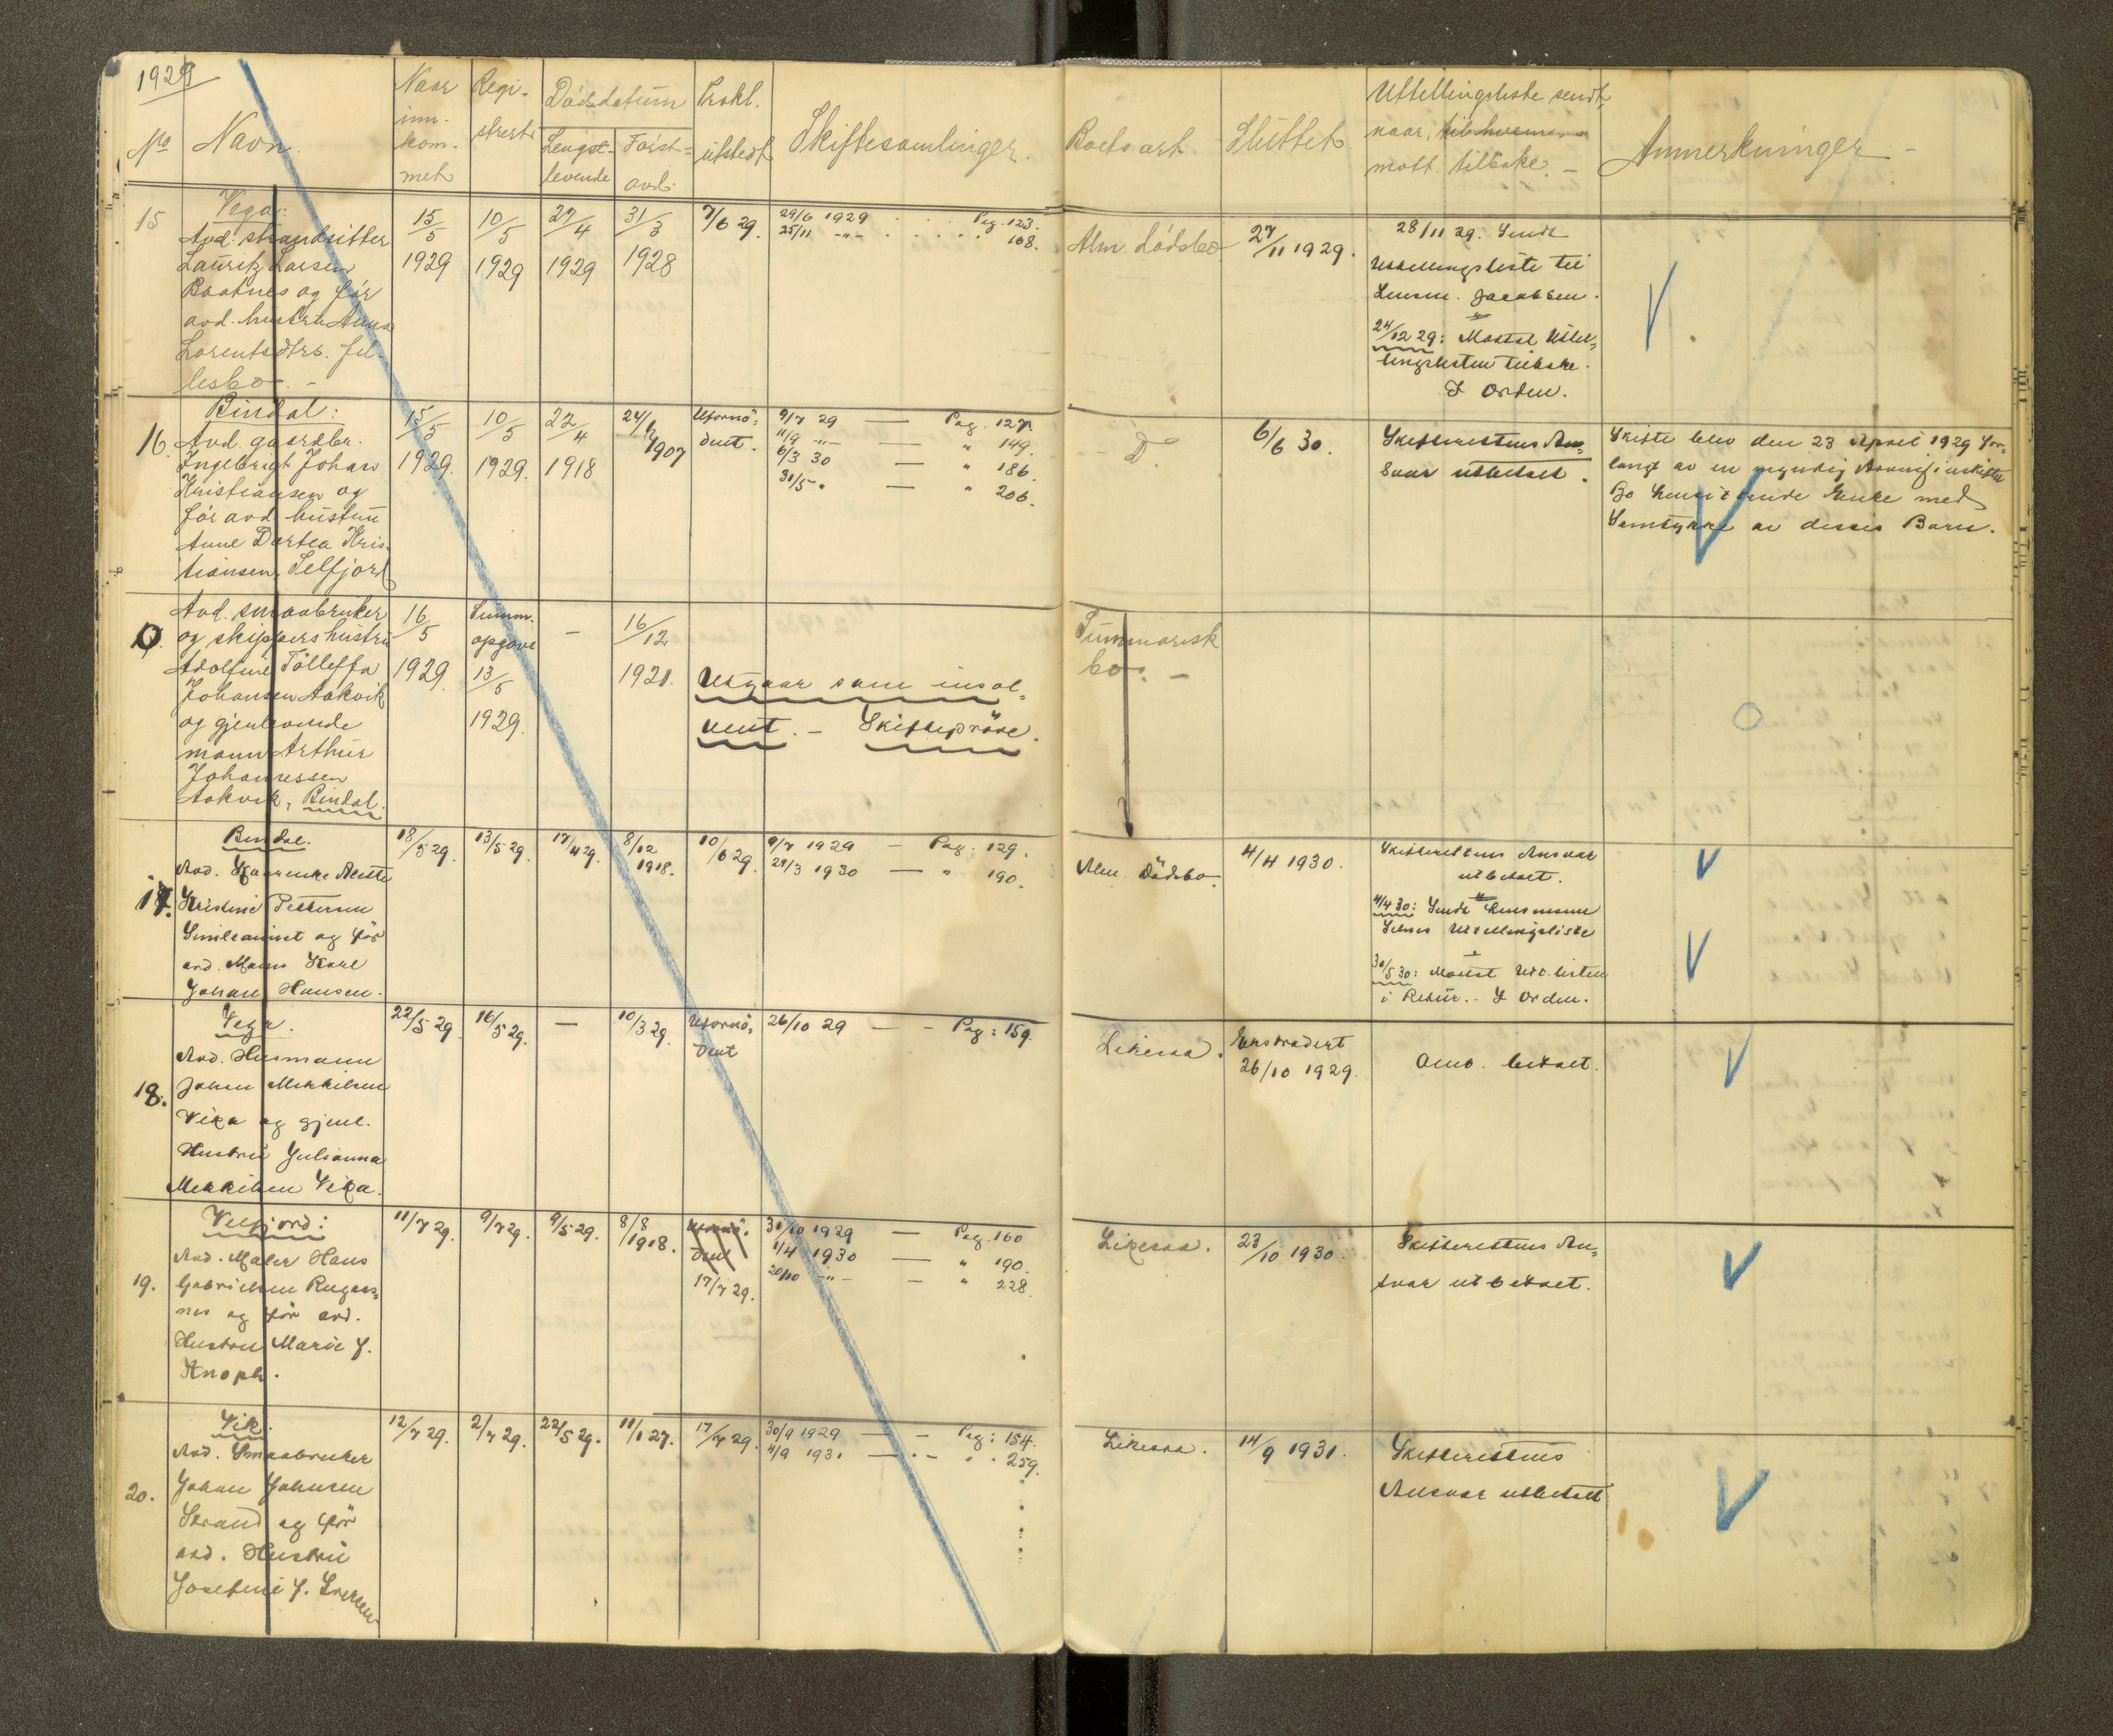 1929
No Navn.
Naar inn- kom- met
Regi- strert
Dødsdatum
Lengst- levende
Først- avd.
Prokl. utstedt
Skiftesamlinger.
Boets art.
Sluttet
Uttellingsliste sendt,
naar, til hvem
mott. tilbake. -
Anmerkninger -
15
Vega:
Avd. strandsitter
Lauritz Larsen
og før
avd. hustru Anna
Lorentsdtr. fel-
lesbo. -
15/5 1929
10/5 1929
27/4 1929
31/3 1928
7/6 29.
29/6 1929 . . . Pag. 123.
25/11 -"- . . . . 168.
Alm. dødsbo
27/11 1929.
28/11 29. Sendt
Uttellingsliste til
Lensm. Jacobsen.
24/12 29: Mottat Uttel-
lingslisten tilbake.
I Orden.
16.
Bindal:
Avd. gaardbr.
Ingebrigt Johan
Kristiansen og
før avd. hustru
Anne Dortea Kris-
tiansen, Selfjord
15/5 1929.
10/5 1929.
22/4 1918
24/ 1907
Ufornø- dent.
9/7 29 — Pag. 127.
11/9 -"- — " 149.
6/3 30 — " 186.
31/5 -"- — " 206.
D.
6/6 30.
Skifterettens An-
svar utbetalt.
Skifte blev den 23 April 1929 for-
langt av en myndig Arving i uskiftet
Bo hensittende Enke med
Samtykke av dessis Barn.
0
Avd. smaabruker
og skippers hustru
Adolfine Tolleffa
Johansen Aakvik
og gjenlevende
mann Arthur
Johannessen
Aakvik, Bindal.
16/5 1929.
Summ. opgave 13/5 1929.
-
16/12 1921.
Utgaar som insol-
vent. - Skifteprøve.
Summarisk
bo. -
17.
Bindal.
Avd. Meste
Kristine Pettersen
og før
avd. Mann Karl
Johan Hansen.
18/5 29.
13/5 29.
17/4 29.
8/12 1918.
10/6 29.
9/7 1929 — Pag. 129.
29/3 1930 — " 190.
Alm. Dødsbo.
4/4 1930.
Skifterettens Ansvar
utbetalt.
4/4 30: Sendt Lensmann
Uttellingsliste
30/5 30: Mottat Utt. listen
i Retur. - I Orden.
18.
Vega.
Avd. Husmann
Johan Mikkelsen
Vika og gjenl.
Hustru Julianna
Mikkelsen Vika.
22/5 29.
16/5 29.
—
10/3 29.
Ufornø- dent
26/10 29 — - Pag: 159.
Likesaa.
Ekstradert
26/10 1929.
Omk. betalt.
19.
Velfjord:
Avd. Maler Hans
Gabrielsen Rugaas-
nes og før avd.
Hustru Marie J.
Knoph.
11/7 29.
9/7 29.
9/5 29.
8/8 1918.
Ufornø- dent
17/7 29.
31/10 1929 — Pag. 160
1/4 1930 — " 190.
20/10 -"- — " 228.
Likesaa.
23/10 1930.
Skifterettens An-
svar utbetalt.
20.
Vik.
Avd. Smaabruker
Johan Johnsen
Strand og før
avd. Hustru
Josefine J. Iversen
12/7 29.
2/7 29.
22/5 29.
11/1 27.
17/7 29.
30/9 1929 — - Pag: 154.
4/9 1931 — . - " . 259.
Likesaa.
14/9 1931.
Skifterettens
Ansvar utbetalt